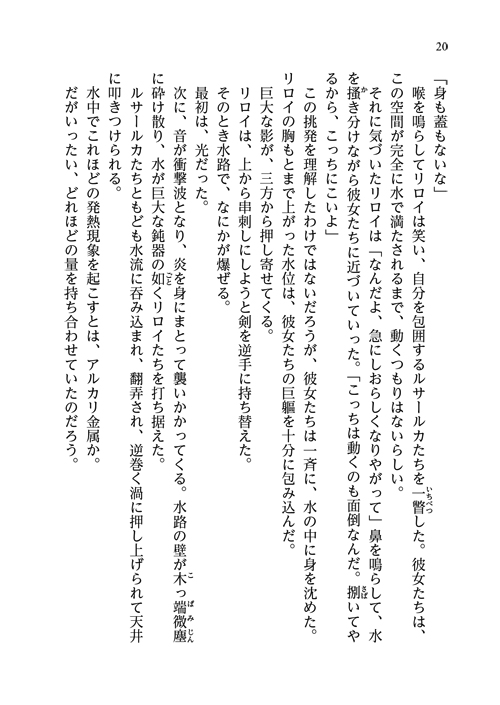 20
「身も蓋もないな」
　喉を鳴らしてリロイは笑い、自分を包囲するルサールカたちを一瞥した。彼女たちは、
この空間が完全に水で満たされるまで、動くつもりはないらしい。
　それに気づいたリロイは「なんだよ、急にしおらしくなりやがって」鼻を鳴らして、水
を掻き分けながら彼女たちに近づいていった。「こっちは動くのも面倒なんだ。捌いてや
るから、こっちにこいよ」
　この挑発を理解したわけではないだろうが、彼女たちは一斉に、水の中に身を沈めた。
リロイの胸もとまで上がった水位は、彼女たちの巨軀を十分に包み込んだ。
　巨大な影が、三方から押し寄せてくる。
　リロイは、上から串刺しにしようと剣を逆手に持ち替えた。
　そのとき水路で、なにかが爆ぜる。
　最初は、光だった。
　次に、音が衝撃波となり、炎を身にまとって襲いかかってくる。水路の壁が木っ端微塵
に砕け散り、水が巨大な鈍器の如くリロイたちを打ち据えた。
　ルサールカたちともども水流に吞み込まれ、翻弄され、逆巻く渦に押し上げられて天井
に叩きつけられる。
　水中でこれほどの発熱現象を起こすとは、アルカリ金属か。
　だがいったい、どれほどの量を持ち合わせていたのだろう。